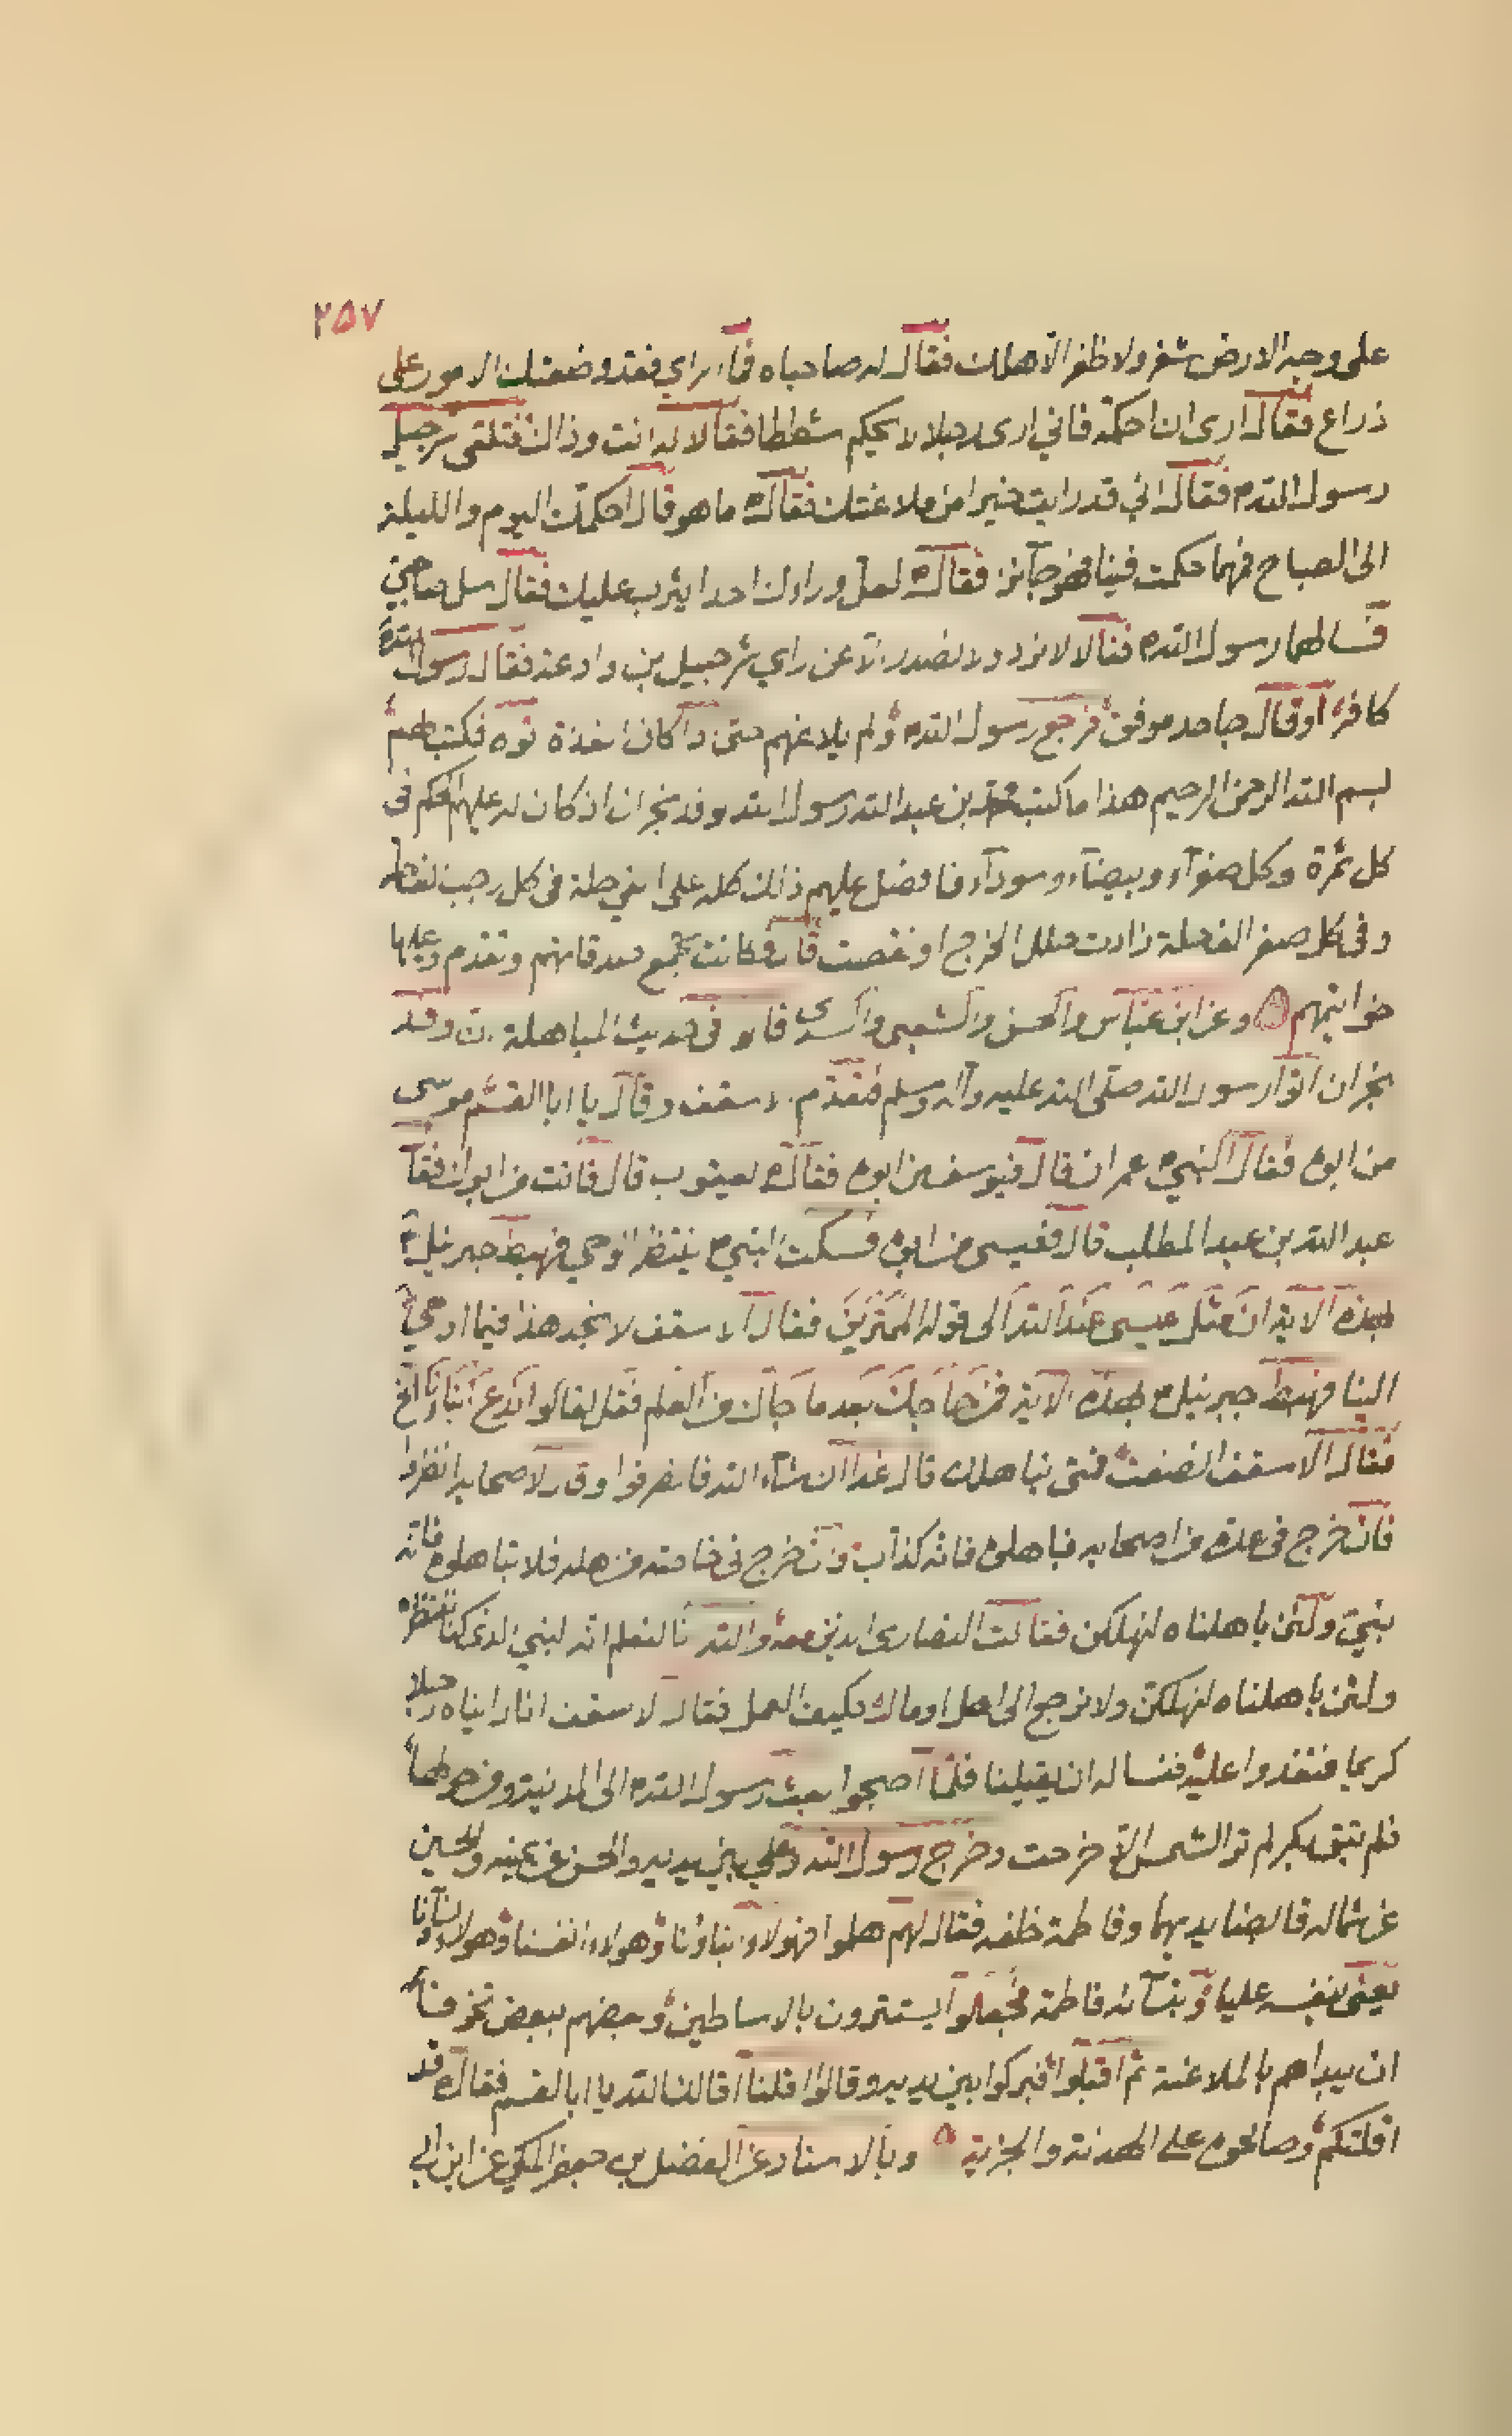 ٢٥٧
على وجه الارض شعر ولا ظفر الا هلك فقال له صاحباه فما الراي فقد وضعتك الامور على
ذراع فقال ارى ان احكمه فاني ارى رجلا لا يحكم شططا فقالا له انت وذاك فتلقى شرحبيل
رسول الله فقال اني قد رايت خيرا من ملاعنتك فقال ما هو قال احكمك اليوم والليلة
الى الصباح فمهما حكمت فينا فهو جايز فقال لعل وراءك احدا يثرب عليك فقال سل صاحبي
فسالهما رسول الله فقالا لا نرد ولا نصدر الا عن راي شرحبيل بن وادعة فقال رسول الله
كافر او قال جاحد موفق فرجع رسول الله ولم يلاعنهم حتى اذا كان الغداة اتوه فكتب لهم
بسم الله الرحمن الرحيم هذا ما كتب محمد بن عبد الله رسول الله وفد نجران ان كان له عليهم الحكم في
كل ثمرة وكل صفرآء وبيضآء وسودآء فافضل عليهم ذلك كله على الفي حلة في كل رجب الف حلة
وفي كل صفر الف حلة زادت حلل الخرج او نقصت قال وكانت تجمع صدقاتهم وتقدم وعليها
خواتيمهم وعن ابن عباس والحسن والشعبي والسدي قالوا في حديث المباهلة ان وفد
نجران اتوا رسول الله صلى الله عليه وآله وسلم فتقدم الاسقف وقال يا ابا القسم موسى
من ابوه فقال النبي عمران قال فيوسف من ابوه فقال يعقوب قال فانت من ابوك فقال
عبد الله بن عبد المطلب قال فعيسى من ابوه فسكت النبي ينتظر الوحي فهبط جبرئيل
بهذه الاية ان مثل عيسى عند الله الى قوله الممترين فقال الاسقف لا نجد هذا فيما اوحي
الينا فهبط جبرئيل بهذه الاية فمن حاجك بعد ما جآك من العلم فقل تعالوا ندع ابناءنا الخ
فقال الاسقف انصفت فمتى نباهلك قال غدا ان شآء الله فانصرفوا وقال لاصحابه انظروا
فان خرج في عدة من اصحابه فباهلوه فانه كذاب وان خرج في خاصته من اهله فلا تباهلوه فانه
نبي ولئن باهلناه لنهلكن فقالت النصارى الذين معه والله انا لنعلم انه النبي الذي كنا ننتظره
ولئن باهلناه لنهلكن ولا نرجع الى اهل او مال فكيف العمل فقال الاسقف انا راينا رجلا
كريما فنغدوا عليه فنساله ان يقيلنا فلما اصبحوا بعث رسول الله الى المدينة ومن حولها
فلم يبق بكر لم تر الشمس الا خرجت وخرج رسول الله وعلي بين يديه والحسن عن يمينه والحسين
عن شماله قابضا يديهما وفاطمة خلفه فقال لهم هلموا فهولاء ابناؤنا وهولاء انفسنا وهولاء نساؤنا
يعني بنفسه عليا وبنسآئه فاطمة فجعلوا يستترون بالاساطين وبعضهم ببعض تخوفا
ان يبداهم بالملاعنة ثم اقبلوا فبركوا بين يديه وقالوا اقلنا اقالك الله يا ابا القسم فقال قد
اقلتكم وصالحوه على الهدنة والجزية ٥ وبالاسناد عن الفضل بن جعفر المكي عن ابن ابي